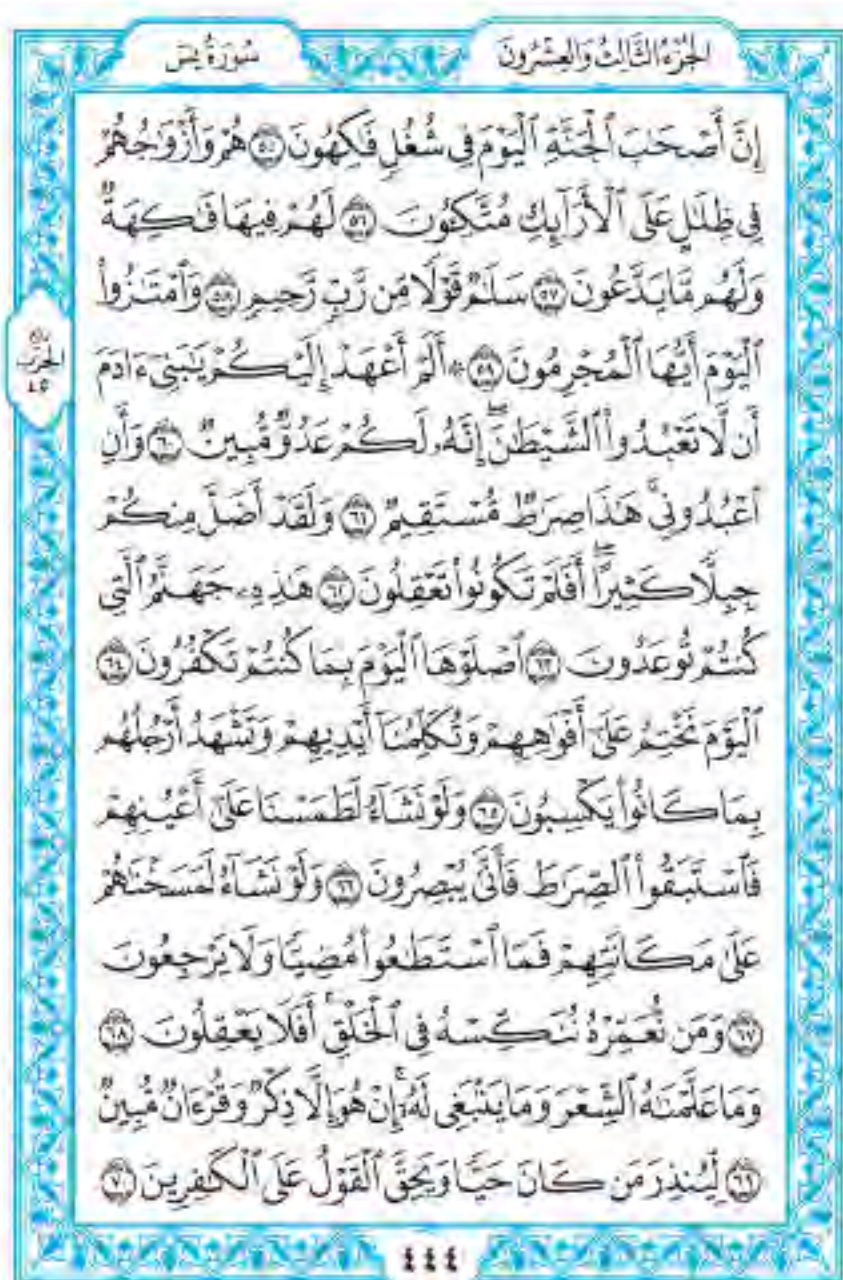 الجُزْءُ الثَّالِثُ وَالعِشْرُونَ
سُورَةُ يسٓ
إِنَّ أَصْحَٰبَ ٱلْجَنَّةِ ٱلْيَوْمَ فِى شُغُلٍ فَٰكِهُونَ ۝٥٥ هُمْ وَأَزْوَٰجُهُمْ
فِى ظِلَٰلٍ عَلَى ٱلْأَرَآئِكِ مُتَّكِـُٔونَ ۝٥٦ لَهُمْ فِيهَا فَٰكِهَةٌ
وَلَهُم مَّا يَدَّعُونَ ۝٥٧ سَلَٰمٌ قَوْلًا مِّن رَّبٍّ رَّحِيمٍ ۝٥٨ وَٱمْتَٰزُوا۟
ٱلْيَوْمَ أَيُّهَا ٱلْمُجْرِمُونَ ۝٥٩ ۞ أَلَمْ أَعْهَدْ إِلَيْكُمْ يَٰبَنِىٓ ءَادَمَ
أَن لَّا تَعْبُدُوا۟ ٱلشَّيْطَٰنَ ۖ إِنَّهُۥ لَكُمْ عَدُوٌّ مُّبِينٌ ۝٦٠ وَأَنِ
ٱعْبُدُونِى ۚ هَٰذَا صِرَٰطٌ مُّسْتَقِيمٌ ۝٦١ وَلَقَدْ أَضَلَّ مِنكُمْ
جِبِلًّا كَثِيرًا ۖ أَفَلَمْ تَكُونُوا۟ تَعْقِلُونَ ۝٦٢ هَٰذِهِۦ جَهَنَّمُ ٱلَّتِى
كُنتُمْ تُوعَدُونَ ۝٦٣ ٱصْلَوْهَا ٱلْيَوْمَ بِمَا كُنتُمْ تَكْفُرُونَ ۝٦٤
ٱلْيَوْمَ نَخْتِمُ عَلَىٰٓ أَفْوَٰهِهِمْ وَتُكَلِّمُنَآ أَيْدِيهِمْ وَتَشْهَدُ أَرْجُلُهُم
بِمَا كَانُوا۟ يَكْسِبُونَ ۝٦٥ وَلَوْ نَشَآءُ لَطَمَسْنَا عَلَىٰٓ أَعْيُنِهِمْ
فَٱسْتَبَقُوا۟ ٱلصِّرَٰطَ فَأَنَّىٰ يُبْصِرُونَ ۝٦٦ وَلَوْ نَشَآءُ لَمَسَخْنَٰهُمْ
عَلَىٰ مَكَانَتِهِمْ فَمَا ٱسْتَطَٰعُوا۟ مُضِيًّا وَلَا يَرْجِعُونَ
۝٦٧ وَمَن نُّعَمِّرْهُ نُنَكِّسْهُ فِى ٱلْخَلْقِ ۖ أَفَلَا يَعْقِلُونَ ۝٦٨
وَمَا عَلَّمْنَٰهُ ٱلشِّعْرَ وَمَا يَنۢبَغِى لَهُۥٓ ۚ إِنْ هُوَ إِلَّا ذِكْرٌ وَقُرْءَانٌ مُّبِينٌ
۝٦٩ لِّيُنذِرَ مَن كَانَ حَيًّا وَيَحِقَّ ٱلْقَوْلُ عَلَى ٱلْكَٰفِرِينَ ۝٧٠
الحزب
٤٥
٤٤٤